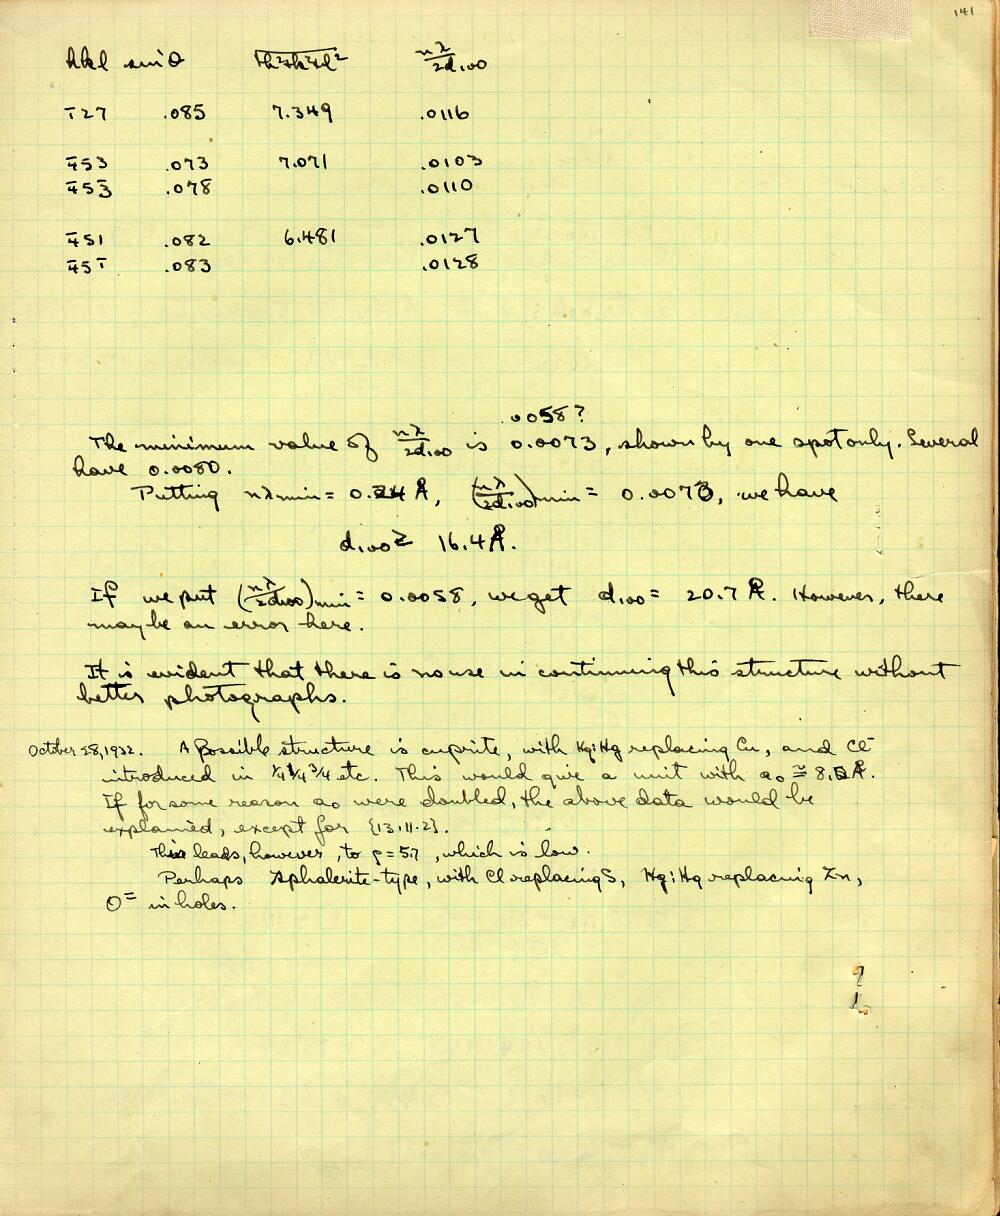 141
hkl sinθ √h²+k²+l² nλ/2d₁₀₀
1̄27 .085 7.349 .0116
4̄53 .073 7.071 .0103
4̄53̄ .078 .0110
4̄51 .082 6.481 .0127
4̄51̄ .083 .0128
.0058?
The minimum value of nλ/2d₁₀₀ is 0.0073, shown by one spot only. Several
have 0.0080.
Putting nλmin = 0.24 Å, (nλ/2d₁₀₀)min = 0.0073, we have
d₁₀₀ ≥ 16.4 Å.
If we put (nλ/2d₁₀₀)min = 0.0058, we get d₁₀₀ = 20.7 Å. However, there
may be an error here.
It is evident that there is no use in continuing this structure without
better photographs.
October 28, 1932. A possible structure is cuprite, with Hg:Hg replacing Cu, and Cl⁻
introduced in ¼ ¼ ¾ etc. This would give a unit with a₀ ≅ 8. Å.
If for some reason a₀ were doubled, the above data would be
explained, except for {13·11·2}.
This leads, however, to ρ = 57, which is low.
Perhaps sphalerite-type, with Cl replacing S, Hg:Hg replacing Zn,
O⁼ in holes.